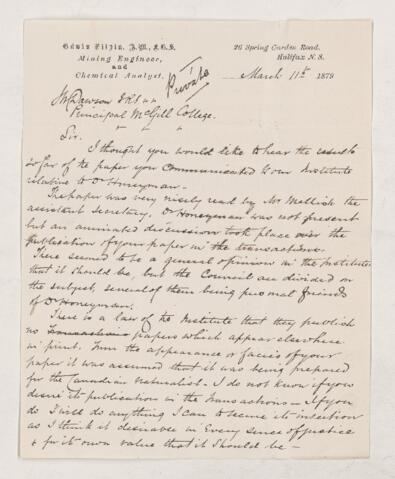 Edwin Gilpin, A.M., F.G.S.
Mining Engineer,
and
Chemical Analyst.
26 Spring Garden Road.
Halifax N. S.
Private
March 11th 1879
Dawson
Principal McGill College.
Sir.
I thought you would like to hear the result
so far of the paper you communicated to our Institute
relative to Dr Honeyman.
The paper was very nicely read by Mr Mellish the
assistant secretary. Dr Honeyman was not present
but an animated discussion took place over the
publication of your paper in the transactions.
There seemed to be a general opinion in the Institute
that it should be, but the Council are divided on
the subject, several of them being personal friends
of Dr Honeyman.
There is a law of the Institute that they publish
no Transactions papers which appear elsewhere
in print. From the appearance or facies of your
paper it was assumed that it was being prepared
for the Canadian Naturalist. I do not know if you
desire its publication in the Transactions - If you
do I will do anything I can to secure its insertion
as I think it desirable in every sense of justice
& for its own value that it should be -